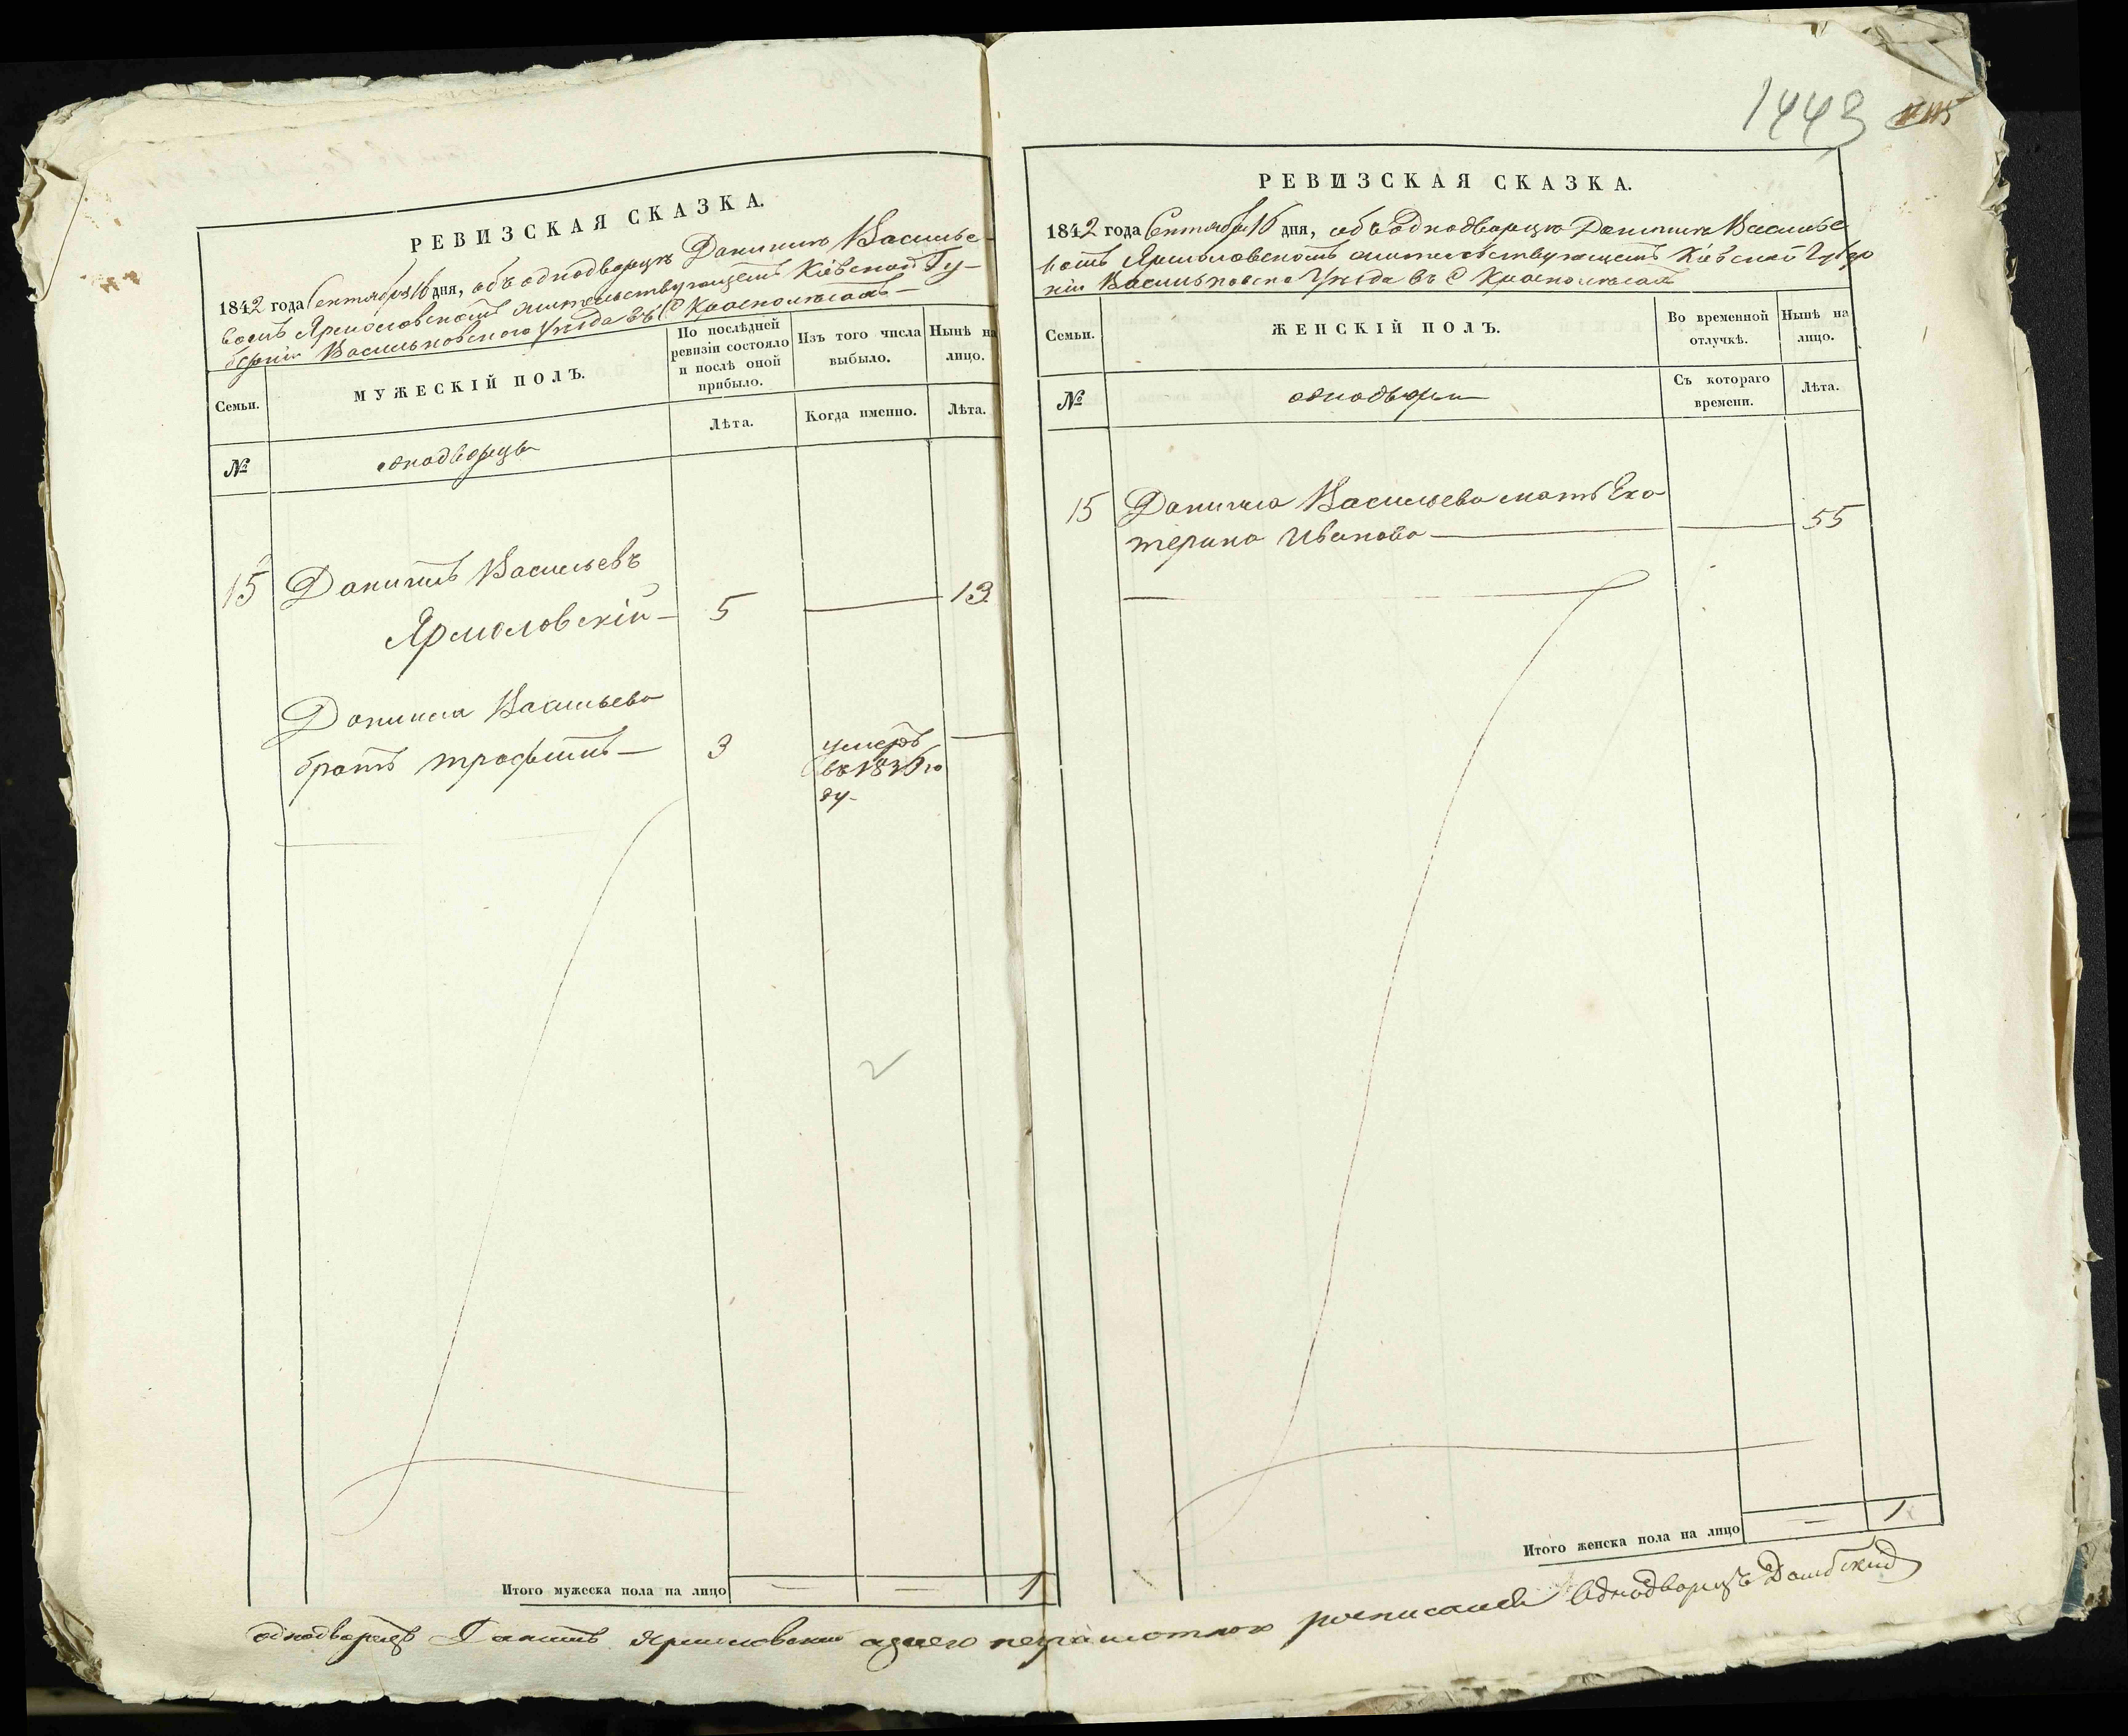 1443
РЕВИЗСКАЯ СКАЗКА.
1842 года Сентября 16 дня, объ однодворцѣ Данилѣ Василье-
вомъ Ярмоловскомъ жительствующемъ Кіевской Гу-
берніи Васильковского Уѣзда въ С
Семьи.
МУЖЕСКІЙ ПОЛЪ.
По послѣдней ревизіи состояло и послѣ оной прибыло.
Изъ того числа выбыло.
Нынѣ на лицо.
Лѣта.
Когда именно.
Лѣта.
№
однодворцы
15 Данилъ Васильевъ
Ярмоловскій — 5 — 13
Данила Васильева
братъ трофимъ — 3 умеръ —
въ 1836 го
ду —
Итого мужеска пола на лицо — — 1
РЕВИЗСКАЯ СКАЗКА.
1842 года Сентября 16 дня, объ Однодворцѣ Данилѣ Василье
вомъ Ярмоловскомъ жительствующемъ Кіевской Губер
ніи Васильковско Уѣзда въ С
Семьи.
ЖЕНСКІЙ ПОЛЪ.
Во временной отлучкѣ.
Нынѣ на лицо.
№
Съ котораго времени.
Лѣта.
15 Данила Васильева мать Ека
терина Иванова — — 55
Итого женска пола на лицо — 1
однодворецъ Данилъ Ярмоловский азанего неграмотного росписался Однодворецъ